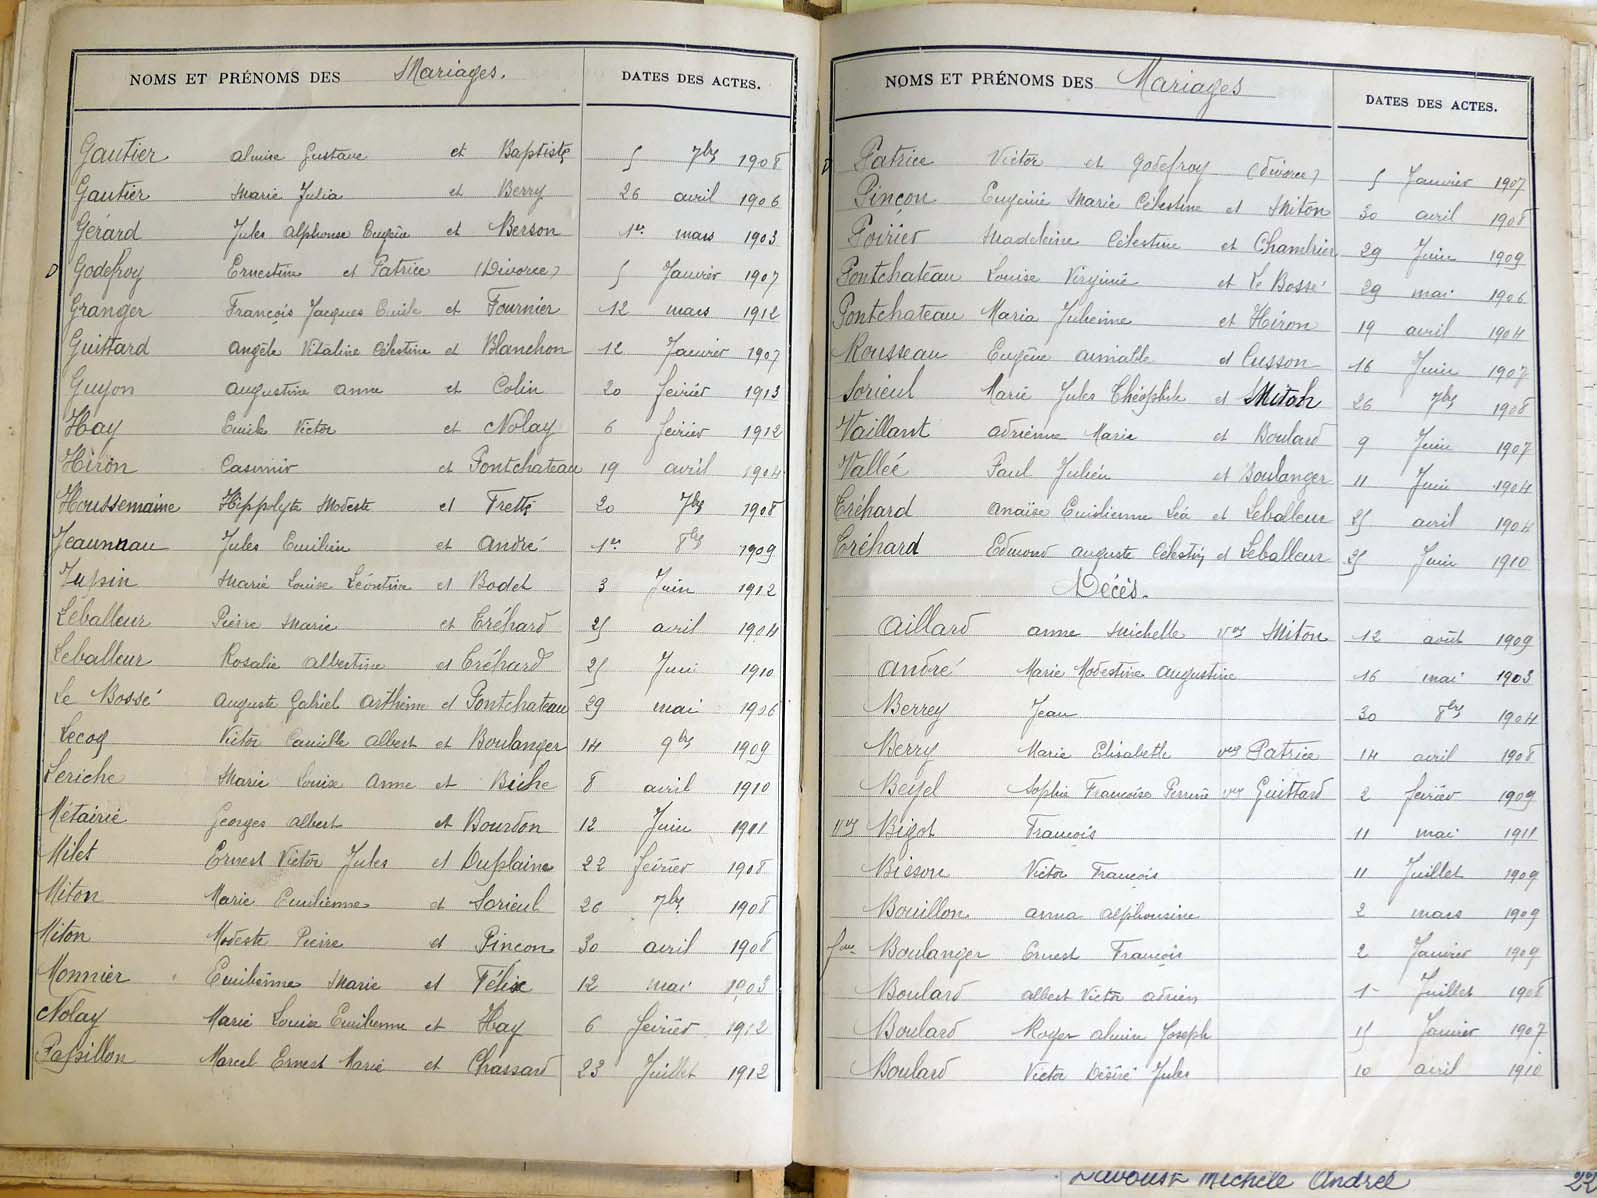 NOMS ET PRÉNOMS DES Mariages. DATES DES ACTES.
Gautier alwire Gustave et Baptiste 5 7bre 1908
Gautier Marie Julia et Berry 26 avril 1906
Gérard Jules alphonse Eugène et Berson 1er mars 1903
D Godefroy Ernestine et Patrice (Divorce) 5 Janvier 1907
Granger François Jacques Emile et Fournier 12 mars 1912
Guittard angèle Vitaline Célestine et Blanchon 12 Janvier 1907
Guyon augustine anne et Colin 20 février 1913
Hay Emile Victor et Nolay 6 février 1912
Héron Casimir et Pontchateau 19 avril 1904
Houssemaine Hippolyte Modeste et Frette 20 7bre 1908
Jeaunnau Jules Emilien et André 1er 8bre 1909
Jupin Marie Louise Léontine et Bodet 3 Juin 1912
Leballeur Pierre Marie et Créhard 25 avril 1904
Leballeur Rosalie albertine et Créhard 25 Juin 1910
Le Bossé auguste Gabriel arthème et Pontchateau 29 mai 1906
Lecoq Victor Camille albert et Boulanger 14 9bre 1909
Leriche Marie Louise anne et Biche 8 avril 1910
Métairie Georges albert et Bourdon 12 Juin 1911
Milet Ernest Victor Jules et Duplaine 22 février 1908
Miton Marie Emilienne et Sorieul 26 7bre 1908
Miton Modeste Pierre et Pinçon 30 avril 1908
Monnier Emilienne Marie et Félix 12 mai 1903
Nolay Marie Louise Emilienne et Hay 6 février 1912
Papillon Marcel Ernest Marie et Chassard 23 Juillet 1912
NOMS ET PRÉNOMS DES Mariages DATES DES ACTES.
D Patrice Victor et Godefroy (Divorce) 5 Janvier 1907
Pinçon Eugénie Marie Célestine et Miton 30 avril 1908
Poirier Madeleine Célestine et Chambrier 29 Juin 1909
Pontchateau Louise Virginie et Le Bossé 29 mai 1906
Pontchateau Maria Julienne et Héron 19 avril 1904
Rousseau Eugène aimable et Cusson 16 Juin 1907
Sorieul Marie Jules Théophile et Miton 26 7bre 1908
Vaillant adrienne Marie et Boulard 9 Juin 1907
Vallée Paul Julien et Boulanger 11 Juin 1904
Créhard anaïse Emilienne Léa et Leballeur 25 avril 1904
Créhard Edmond auguste Célestin et Leballeur 25 Juin 1910
Décès.
aillard anne Michelle vve Miton 12 août 1909
andré Marie Modestine augustine 16 mai 1903
Berrey Jean 30 8bre 1904
Berry Marie Elisabeth vve Patrice 14 avril 1908
Beyel Sophie Françoise Perrine vve Guittard 2 février 1909
vve Bigot François 11 mai 1911
Bisson Victor François 11 Juillet 1909
Bouillon anna alphonsine 2 mars 1909
Boulanger Ernest François 2 Janvier 1909
Boulard albert Victor adrien 1er Juillet 1908
Boulard Roger alwire Joseph 15 Janvier 1907
Boulard Victor Désiré Jules 10 avril 1910
Davoust Michèle Andrée 22